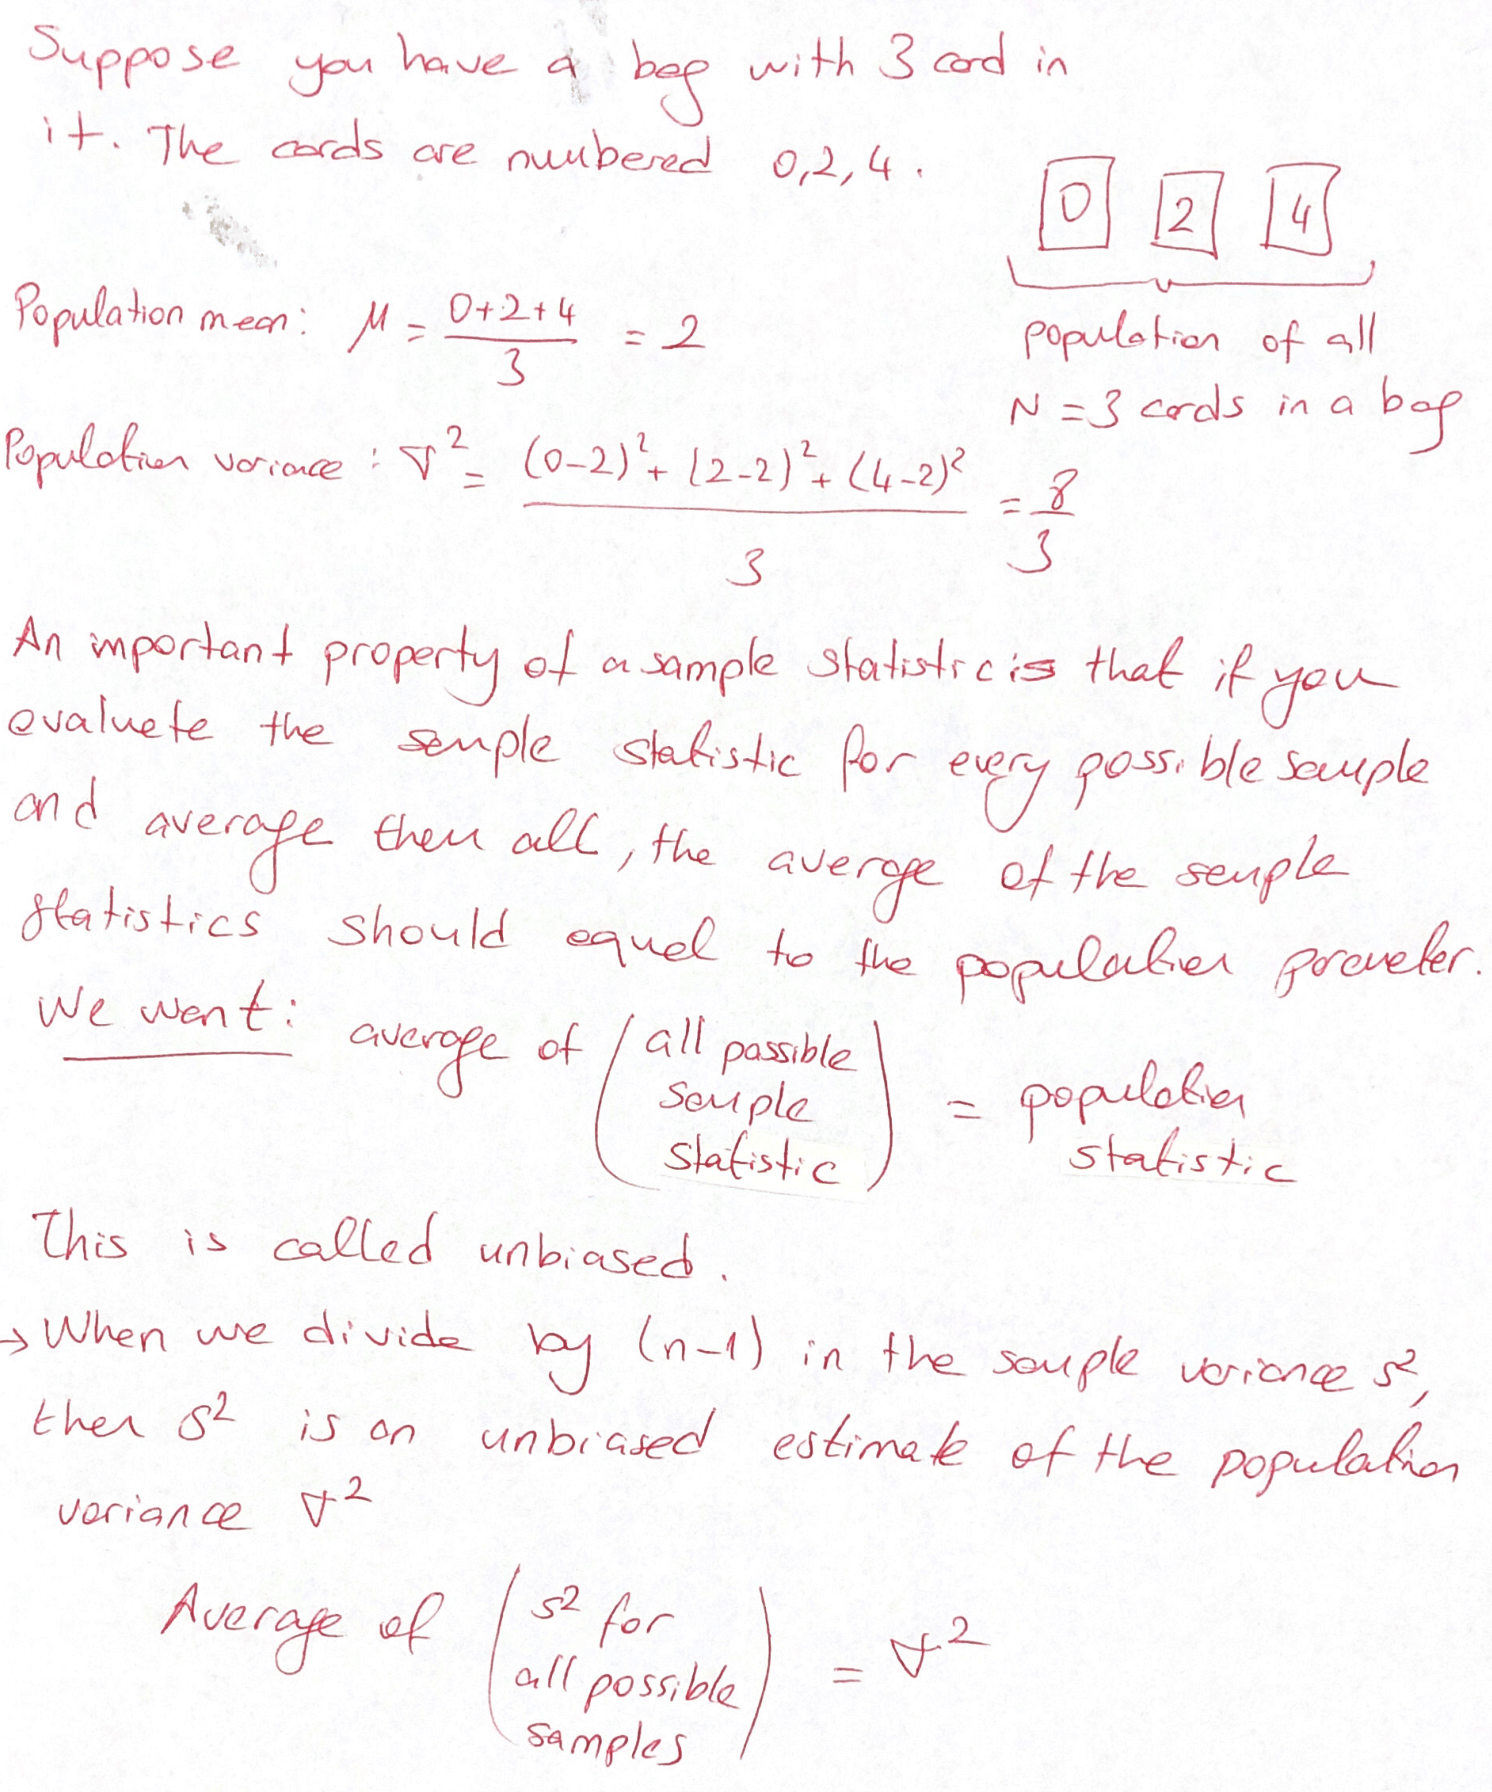 Suppose you have a bag with 3 card in
it. The cards are numbered 0,2,4.
0 2 4
population of all
N = 3 cards in a bag
Population mean: μ = (0+2+4)/3 = 2
Population variance: σ² = ((0-2)² + (2-2)² + (4-2)²)/3 = 8/3
An important property of a sample statistic is that if you
evaluate the sample statistic for every possible sample
and average them all, the average of the sample
statistics should equal to the population parameter.
We want: average of (all possible
sample
statistic) = population
statistic
This is called unbiased.
→ When we divide by (n-1) in the sample variance s²,
then s² is an unbiased estimate of the population
variance σ²
Average of (s² for
all possible
samples) = σ²